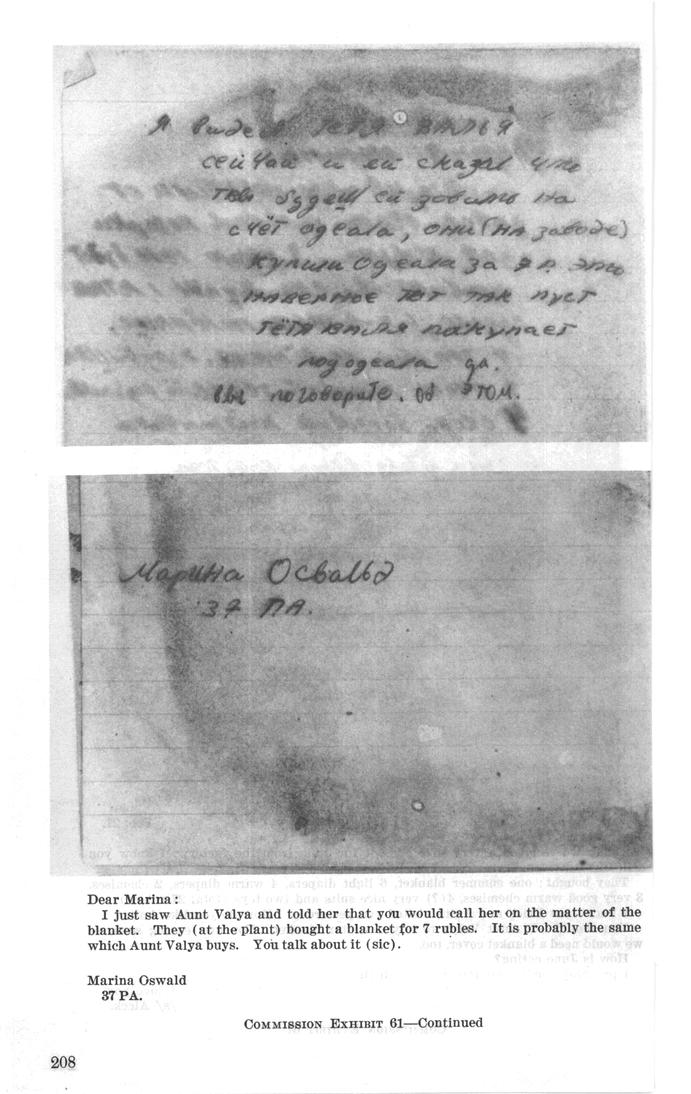 Я видел тетя Валья
сейчаи и ей сказал что
ты будеш ей зовить на
счёт одеала, они (на заводе)
купили одеала за 7 р. это
наверное тот так пуст
тётя Валя покупает
пододеала да.
вы поговорите. об этом.
Марина Освальд
37 ПА.
Dear Marina:
I just saw Aunt Valya and told her that you would call her on the matter of the
blanket. They (at the plant) bought a blanket for 7 rubles. It is probably the same
which Aunt Valya buys. You talk about it (sic).
Marina Oswald
37 PA.
COMMISSION EXHIBIT 61—Continued
208